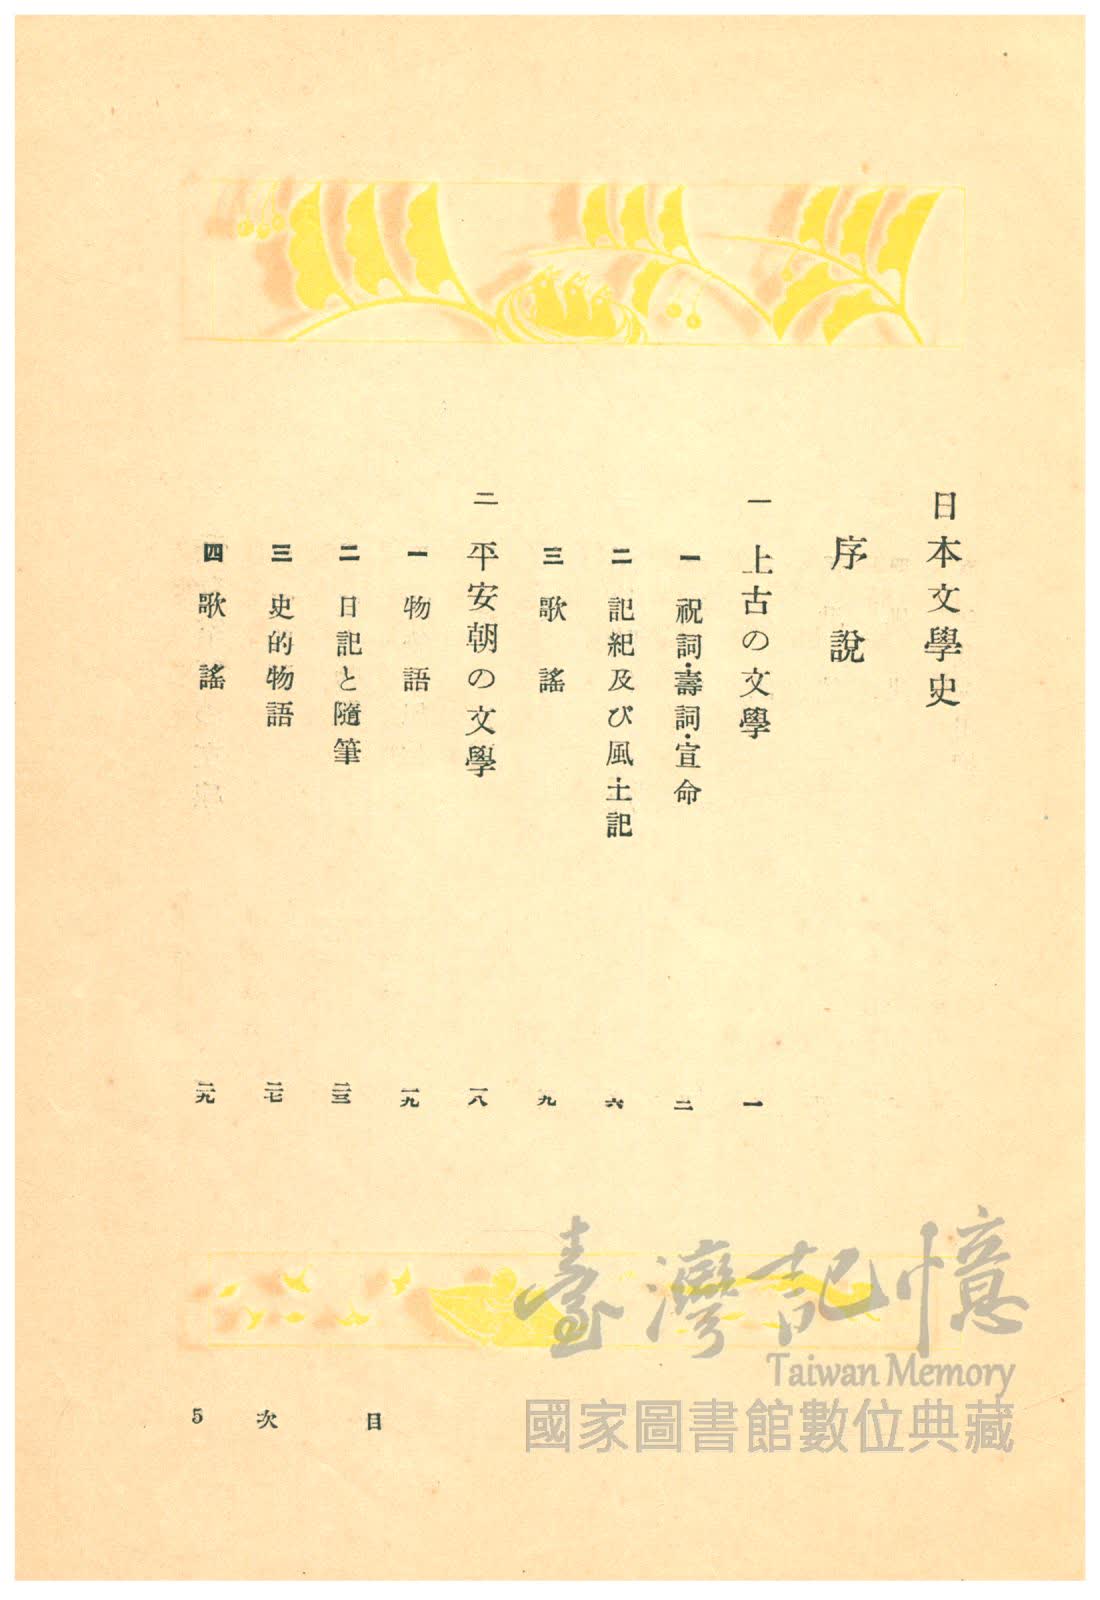 日本文學史
序說
一 上古の文學 一
一 祝詞·壽詞·宣命 二
二 記紀及び風土記 六
三 歌謠 九
二 平安朝の文學 一八
一 物語 一九
二 日記と隨筆 二三
三 史的物語 二七
四 歌謠 二九
目次 5
臺灣記憶
Taiwan Memory
國家圖書館數位典藏